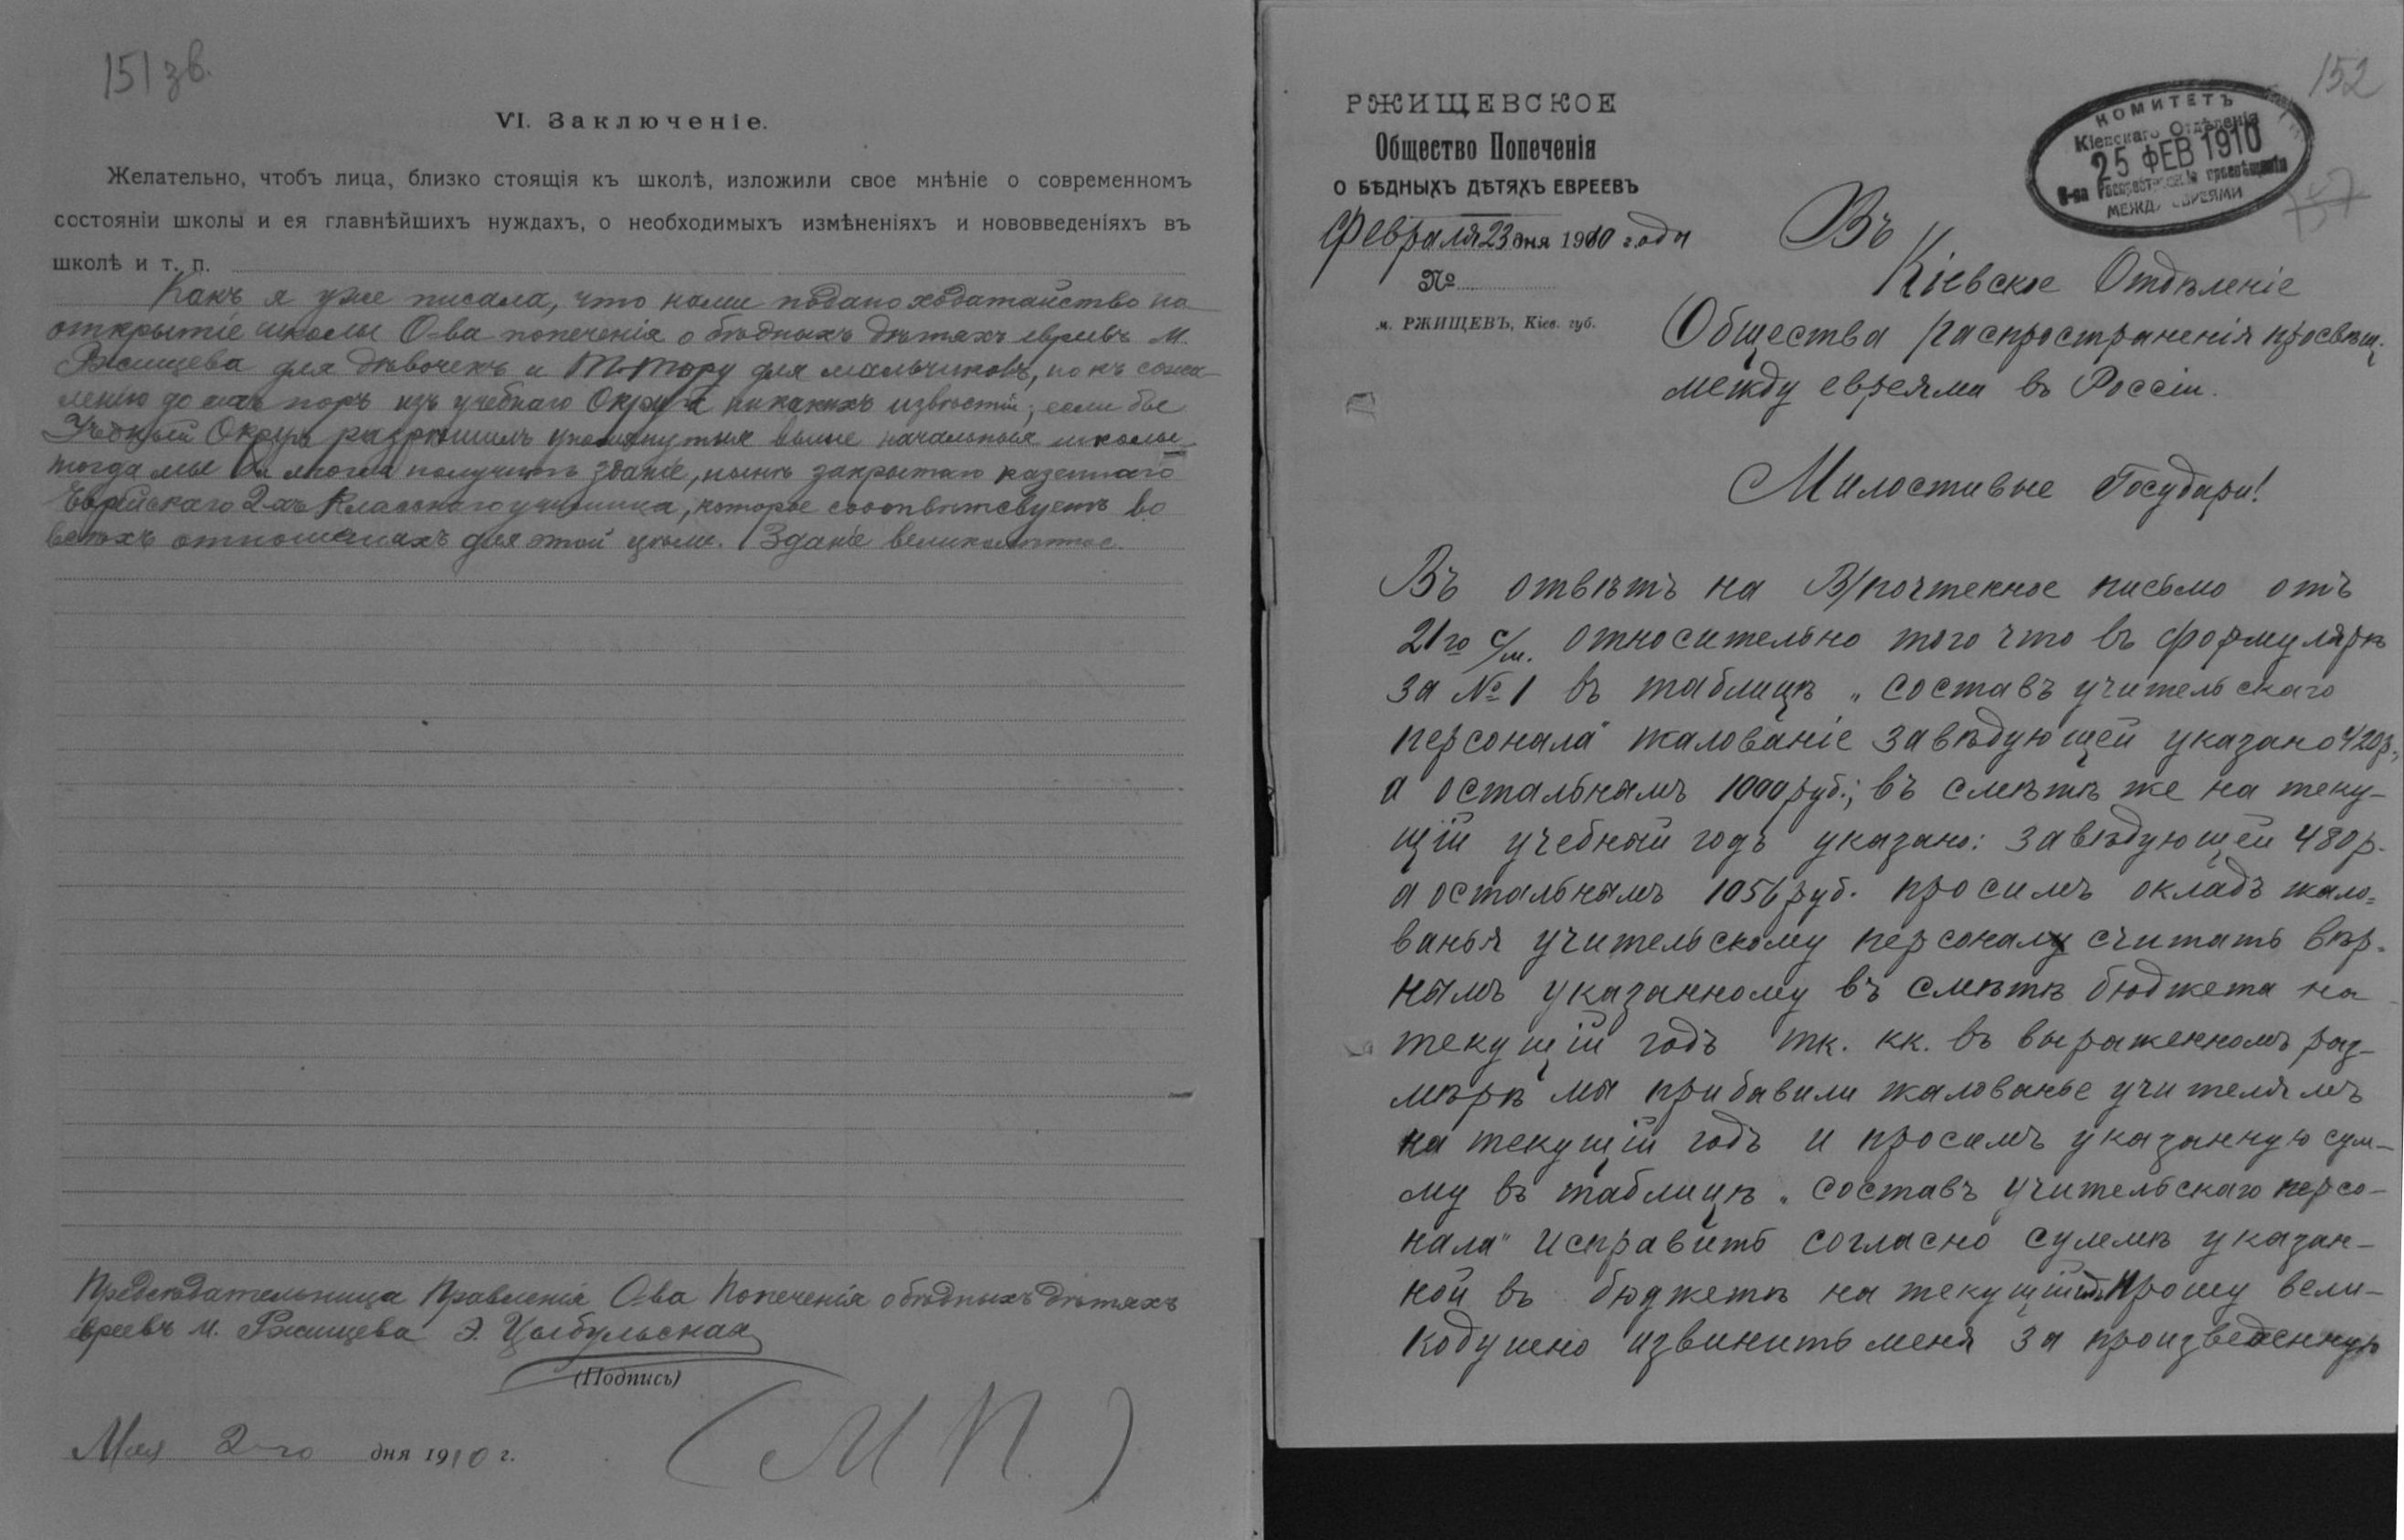 151 зв.
VI. Заключеніе.
Желательно, чтобъ лица, близко стоящія къ школѣ, изложили свое мнѣніе о современномъ
состояніи школы и ея главнѣйшихъ нуждахъ, о необходимыхъ измѣненіяхъ и нововведеніяхъ въ
школѣ и т. п.
Какъ я уже писала, что нами подано ходатайство на
открытіе школы О-ва попеченія о бѣдныхъ дѣтяхъ евреевъ м.
Ржищева для дѣвочекъ и Т-Тору для мальчиковъ, но къ сожа-
лѣнію до сихъ поръ изъ учебнаго Округа никакихъ извѣстій; если бы
Округъ разрѣшилъ упомянутыя выше начальныя школы
тогда мы бы могли получить зданіе, нынѣ закрытаго казеннаго
Еврейскаго 2-хъ класснаго училища, которое соотвѣтсвуетъ во
всѣхъ отношеніяхъ для этой цѣли. Зданіе великолѣпное.
Предсѣдательница Правленія О-ва Попеченія о бѣдныхъ дѣтяхъ
евреевъ м. Ржищева Э. Цыбульская
(Подпись)
Мая 2-го дня 1910 г.
(М П.)
152
РЖИЩЕВСКОЕ
Общество Попеченія
О БѢДНЫХЪ ДѢТЯХЪ ЕВРЕЕВЪ
Февраля 23 дня 1910 года
№
м. РЖИЩЕВЪ, Кіев. губ.
КОМИТЕТЪ
Кіевскаго Отдѣленія
25 ФЕВ 1910
О-ва Распространенія просвѣщенія
МЕЖДУ ЕВРЕЯМИ
Въ
Кіевское Отдѣленіе
Общества распространенія просвѣщ.
между евреями въ Россіи.
Милостивые Государи!
Въ отвѣтъ на В/почтенное письмо отъ
21го с/м. относительно того что въ формулярѣ
за №1 въ таблицѣ „составъ учительскаго
персонала" жалованіе завѣдующей указано 420р.,
а остальнымъ 1000 руб.; въ смѣтѣ же на теку-
щій учебный годъ указано: завѣдующей 480р.
а остальнымъ 1056 руб. просимъ окладъ жало=
ванья учительскому персоналу считать вѣр=
нымъ указанному въ смѣтѣ бюджета на
текущій годъ тк. кк. въ выраженномъ раз-
мѣрѣ мы прибавили жалованье учителямъ
на текущій годъ и просимъ указанную сум-
му въ таблицѣ „составъ учительскаго персо-
нала" исправить согласно суммѣ указан-
ной въ бюджетѣ на текущій годъ. Прошу вели-
кодушно извинить меня за произведенную